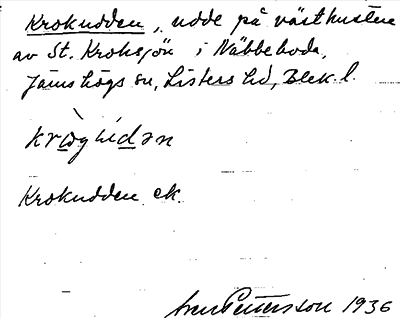 Krokudden, udde på västkusten
av St. Kroksjön i Näbbeboda,
Jämshögs sn, Listers hd, Blek. l.
Krokudden ek.
Pettersson 1936